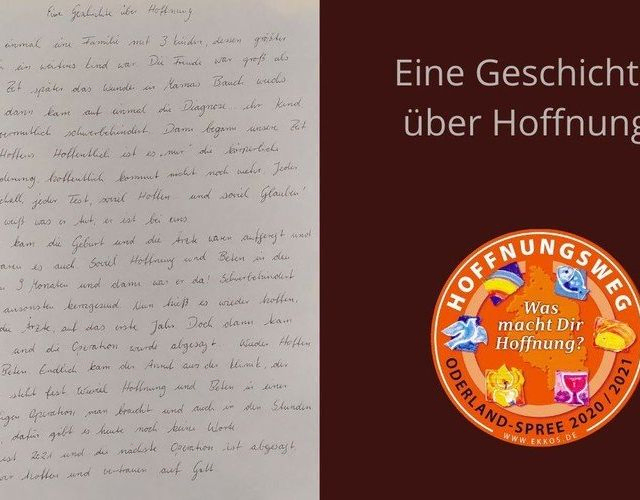 Eine Geschichte über Hoffnung
einmal eine Familie mit 3 Kinder, dessen größter
ein weiteres Kind war. Die Freude war groß als
Zeit später das Wunder in Mamas Bauch wuchs
dann kam auf einmal die Diagnose... ihr Kind
vermutlich schwerbehindert. Dann begann unsere Zeit
Hoffens. Hoffentlich ist es „nur" die körperliche
hoffentlich kommt nicht noch mehr. Jeder
jeder Test, soviel Hoffen und soviel Glauben!
weiß was er tut, er ist bei uns.
kam die Geburt und die Ärzte waren aufgeregt und
waren es auch. Soviel Hoffnung und Beten in den
9 Monaten und dann war er da! Schwerbehindert
ansonsten kerngesund. Nun hieß es wieder hoffen,
die Ärzte, auf das erste Jahr. Doch dann kam
und die Operation wurde abgesagt. Wieder Hoffen
Beten. Endlich kam der Anruf aus der Klinik, der
steht fest. Wieviel Hoffnung und Beten in einer
Operation man braucht und auch in den Stunden
dafür gibt es heute noch keine Worte.
ist 2021 und die nächste Operation ist abgesagt.
wir hoffen und vertrauen auf Gott.
Eine Geschicht
über Hoffnung
HOFFNUNGSWEG
Was
macht Dir
Hoffnung?
ODERLAND-SPREE 2020/2021
WWW.EKKOS.DE